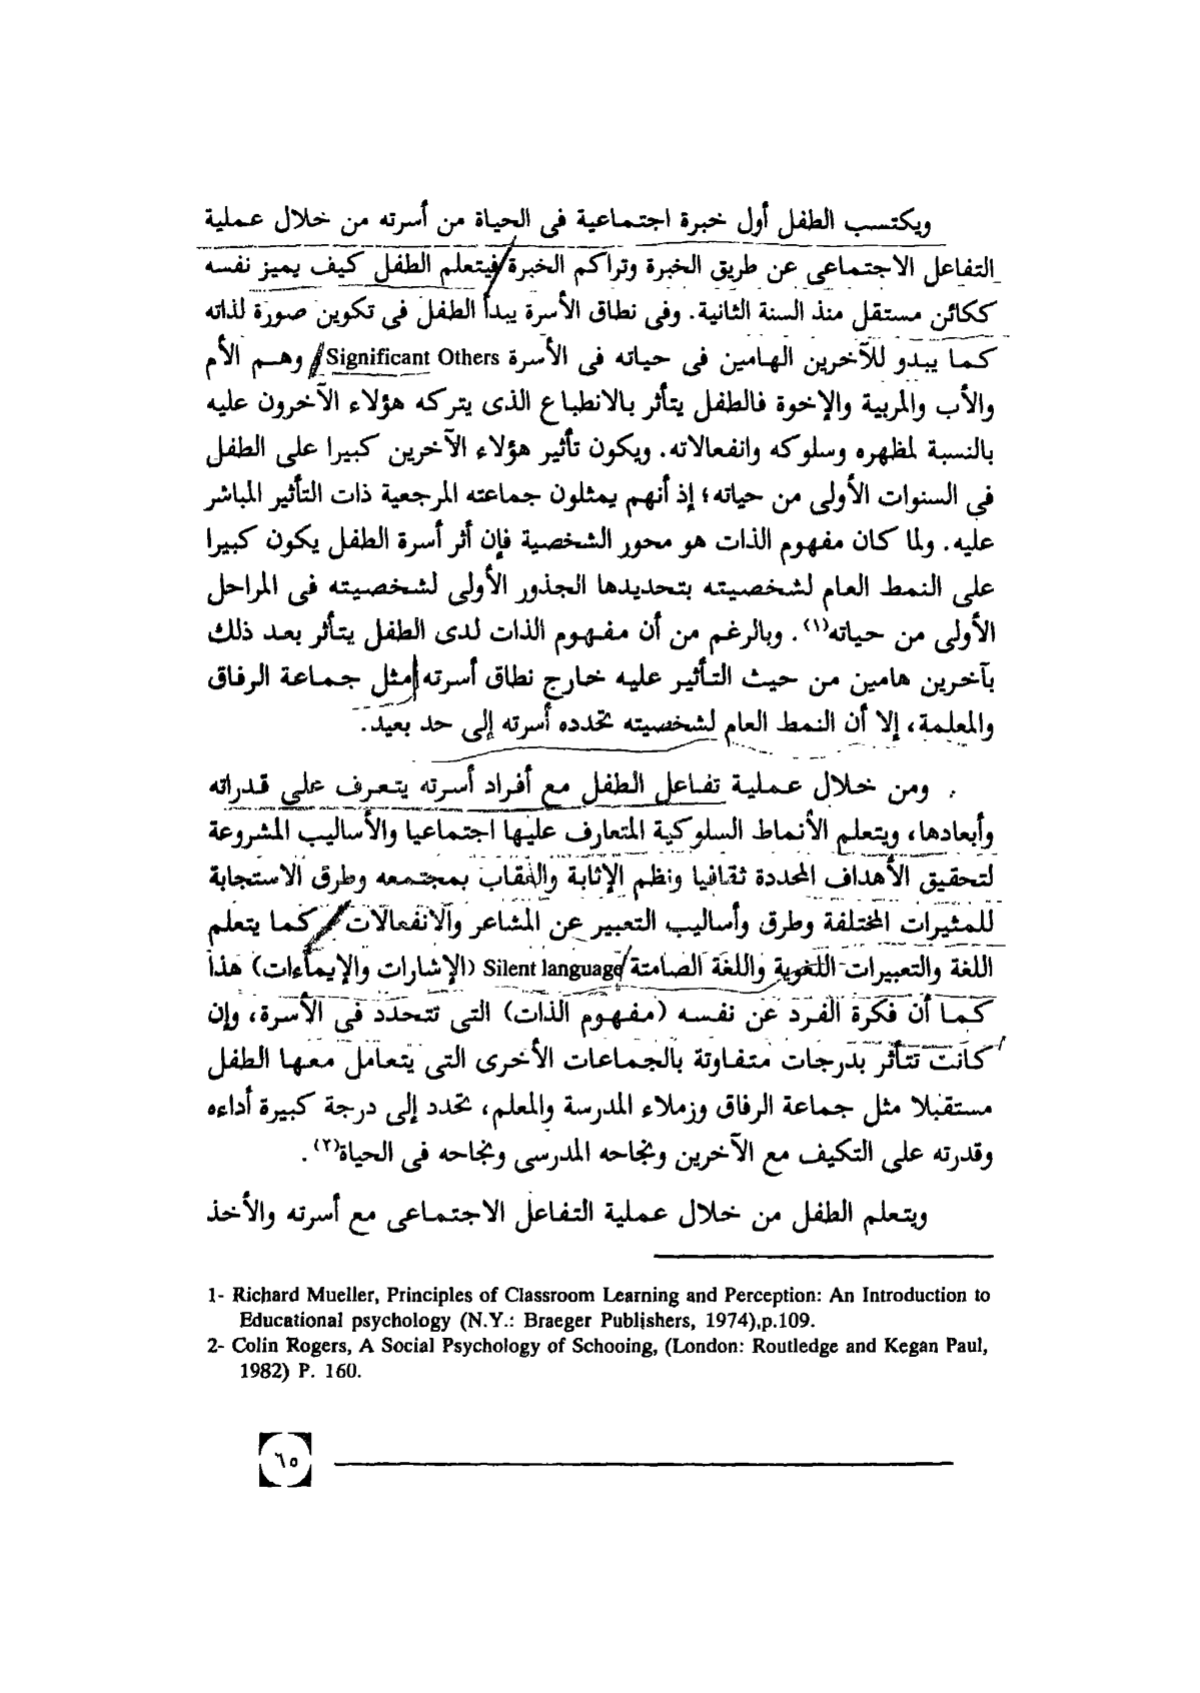 ويكتسب الطفل أول خبرة اجتماعية فى الحياة من أسرته من خلال عملية
التفاعل الاجتماعى عن طريق الخبرة وتراكم الخبرة فيتعلم الطفل كيف يميز نفسه
ككائن مستقل منذ السنة الثانية. وفى نطاق الأسرة يبدأ الطفل فى تكوين صورة لذاته
كما يبدو للآخرين الهامين فى حياته فى الأسرة Significant Others وهم الأم
والأب والمربية والإخوة فالطفل يتأثر بالانطباع الذى يتركه هؤلاء الآخرون عليه
بالنسبة لمظهره وسلوكه وانفعالاته. ويكون تأثير هؤلاء الآخرين كبيرا على الطفل
فى السنوات الأولى من حياته؛ إذ أنهم يمثلون جماعته المرجعية ذات التأثير المباشر
عليه. ولما كان مفهوم الذات هو محور الشخصية فإن أثر أسرة الطفل يكون كبيرا
على النمط العام لشخصيته بتحديدها الجذور الأولى لشخصيته فى المراحل
الأولى من حياته(١). وبالرغم من أن مفهوم الذات لدى الطفل يتأثر بعد ذلك
بآخرين هامين من حيث التأثير عليه خارج نطاق أسرته مثل جماعة الرفاق
والمعلمة، إلا أن النمط العام لشخصيته تحدده أسرته إلى حد بعيد.
ومن خلال عملية تفاعل الطفل مع أفراد أسرته يتعرف على قدراته
وأبعادها، ويتعلم الأنماط السلوكية المتعارف عليها اجتماعيا والأساليب المشروعة
لتحقيق الأهداف المحددة ثقافيا ونظم الإثابة والعقاب بمجتمعه وطرق الاستجابة
للمثيرات المختلفة وطرق وأساليب التعبير عن المشاعر والانفعالات كما يتعلم
اللغة والتعبيرات اللغوية واللغة الصامتة Silent language (الإشارات والإيماءات) هذا
كما أن فكرة الفرد عن نفسه (مفهوم الذات) التى تتحدد فى الأسرة، وإن
كانت تتأثر بدرجات متفاوتة بالجماعات الأخرى التى يتعامل معها الطفل
مستقبلا مثل جماعة الرفاق وزملاء المدرسة والمعلم، تحدد إلى درجة كبيرة أداءه
وقدرته على التكيف مع الآخرين ونجاحه المدرسى ونجاحه فى الحياة(٢).
ويتعلم الطفل من خلال عملية التفاعل الاجتماعى مع أسرته والأخذ
1- Richard Mueller, Principles of Classroom Learning and Perception: An Introduction to
Educational psychology (N.Y.: Braeger Publishers, 1974),p.109.
2- Colin Rogers, A Social Psychology of Schooing, (London: Routledge and Kegan Paul,
1982) P. 160.
٦٥